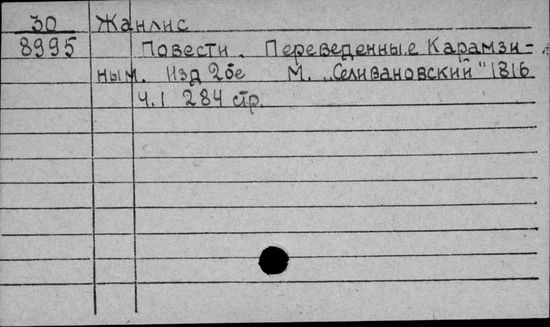 30 Жанлис
8995 Повести. Переведенные Карамзи-
ным. Изд 2ое М. „Селивановский" 1816
Ч.1 284 стр.